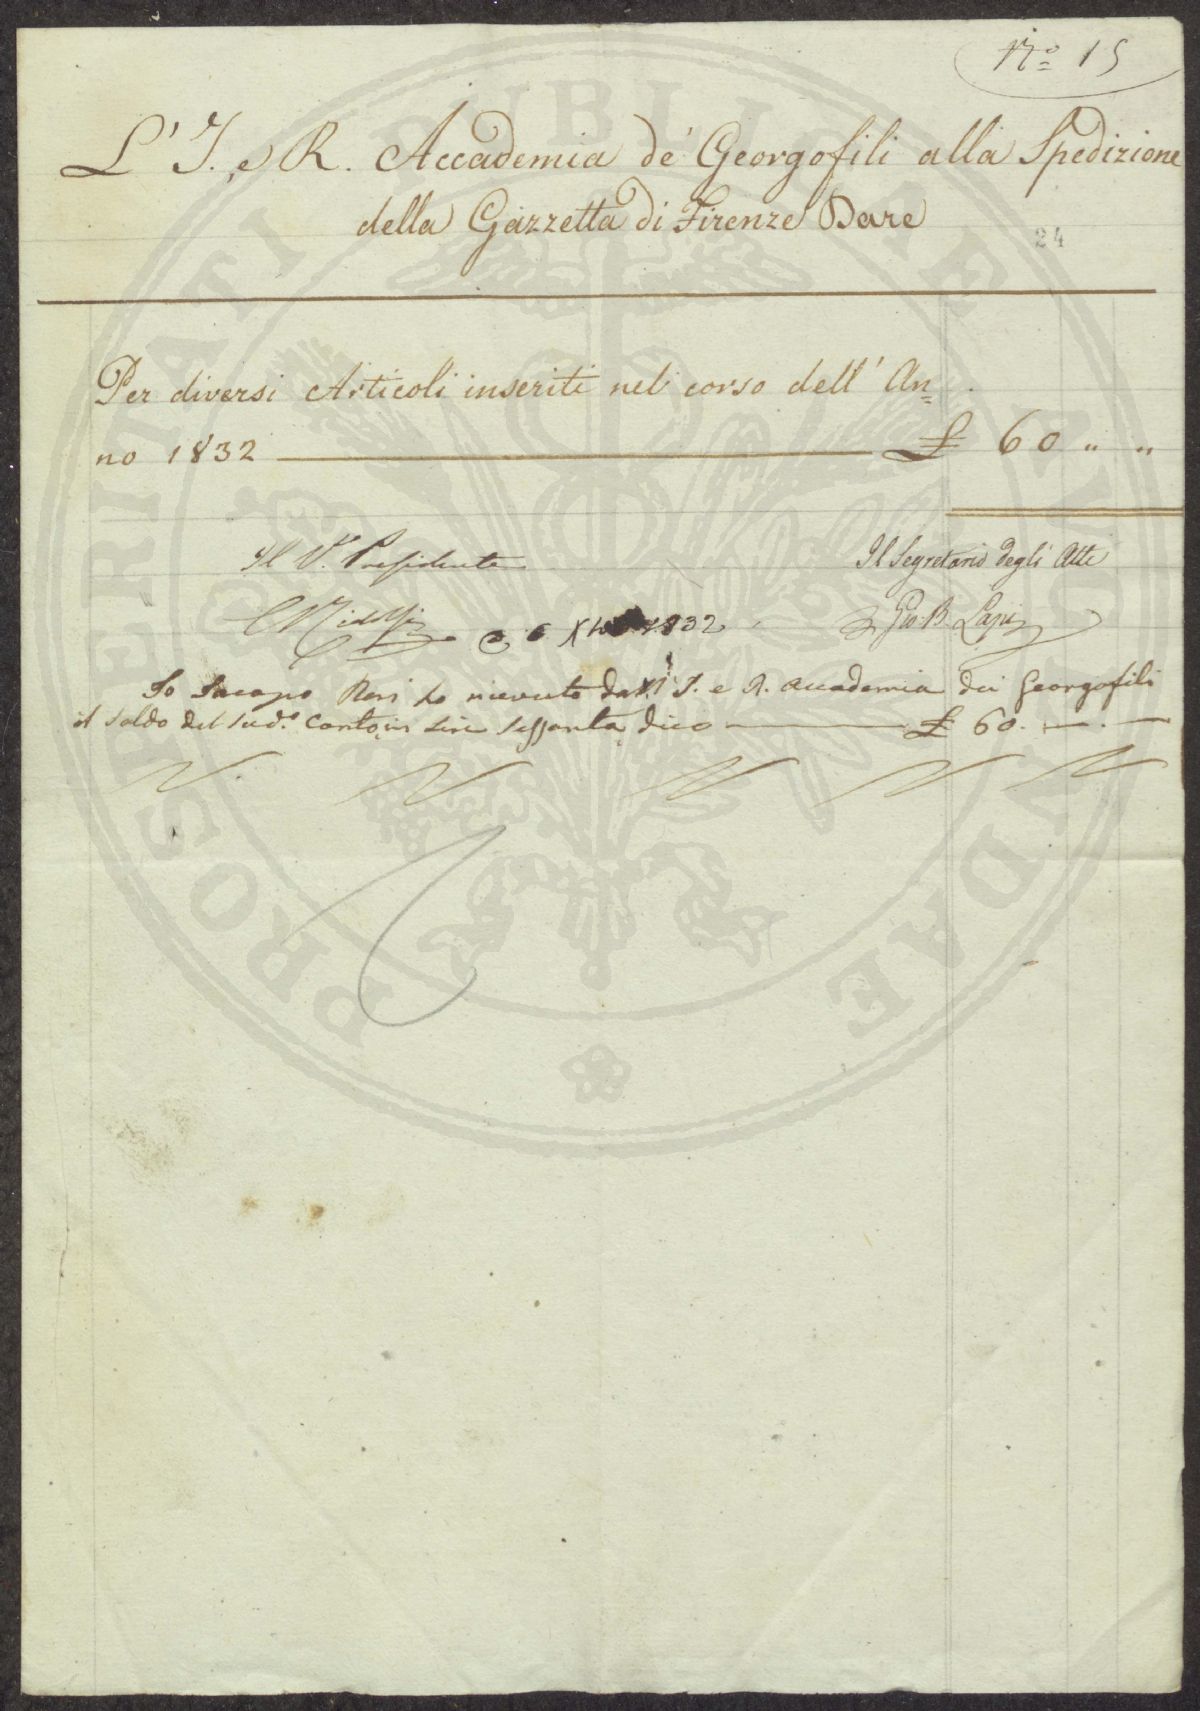 N.º 15
L' I. e R. Accademia de' Georgofili alla Spedizione
della Gazzetta di Firenze Dare
24
Per diversi Articoli inseriti nel corso dell' An=
no 1832 £ 60 " "
Il V. Presidente Il Segretario degli Atti
C Ridolfi 1832 Gio. B. Lapi
Io Jacopo Neri ho ricevuto dall' I. e R. Accademia dei Georgofili
il saldo del sud.º Conto, in Lire Sessanta, dico £ 60. — . —
PROSPERITATI PUBLICAE AUGENDAE